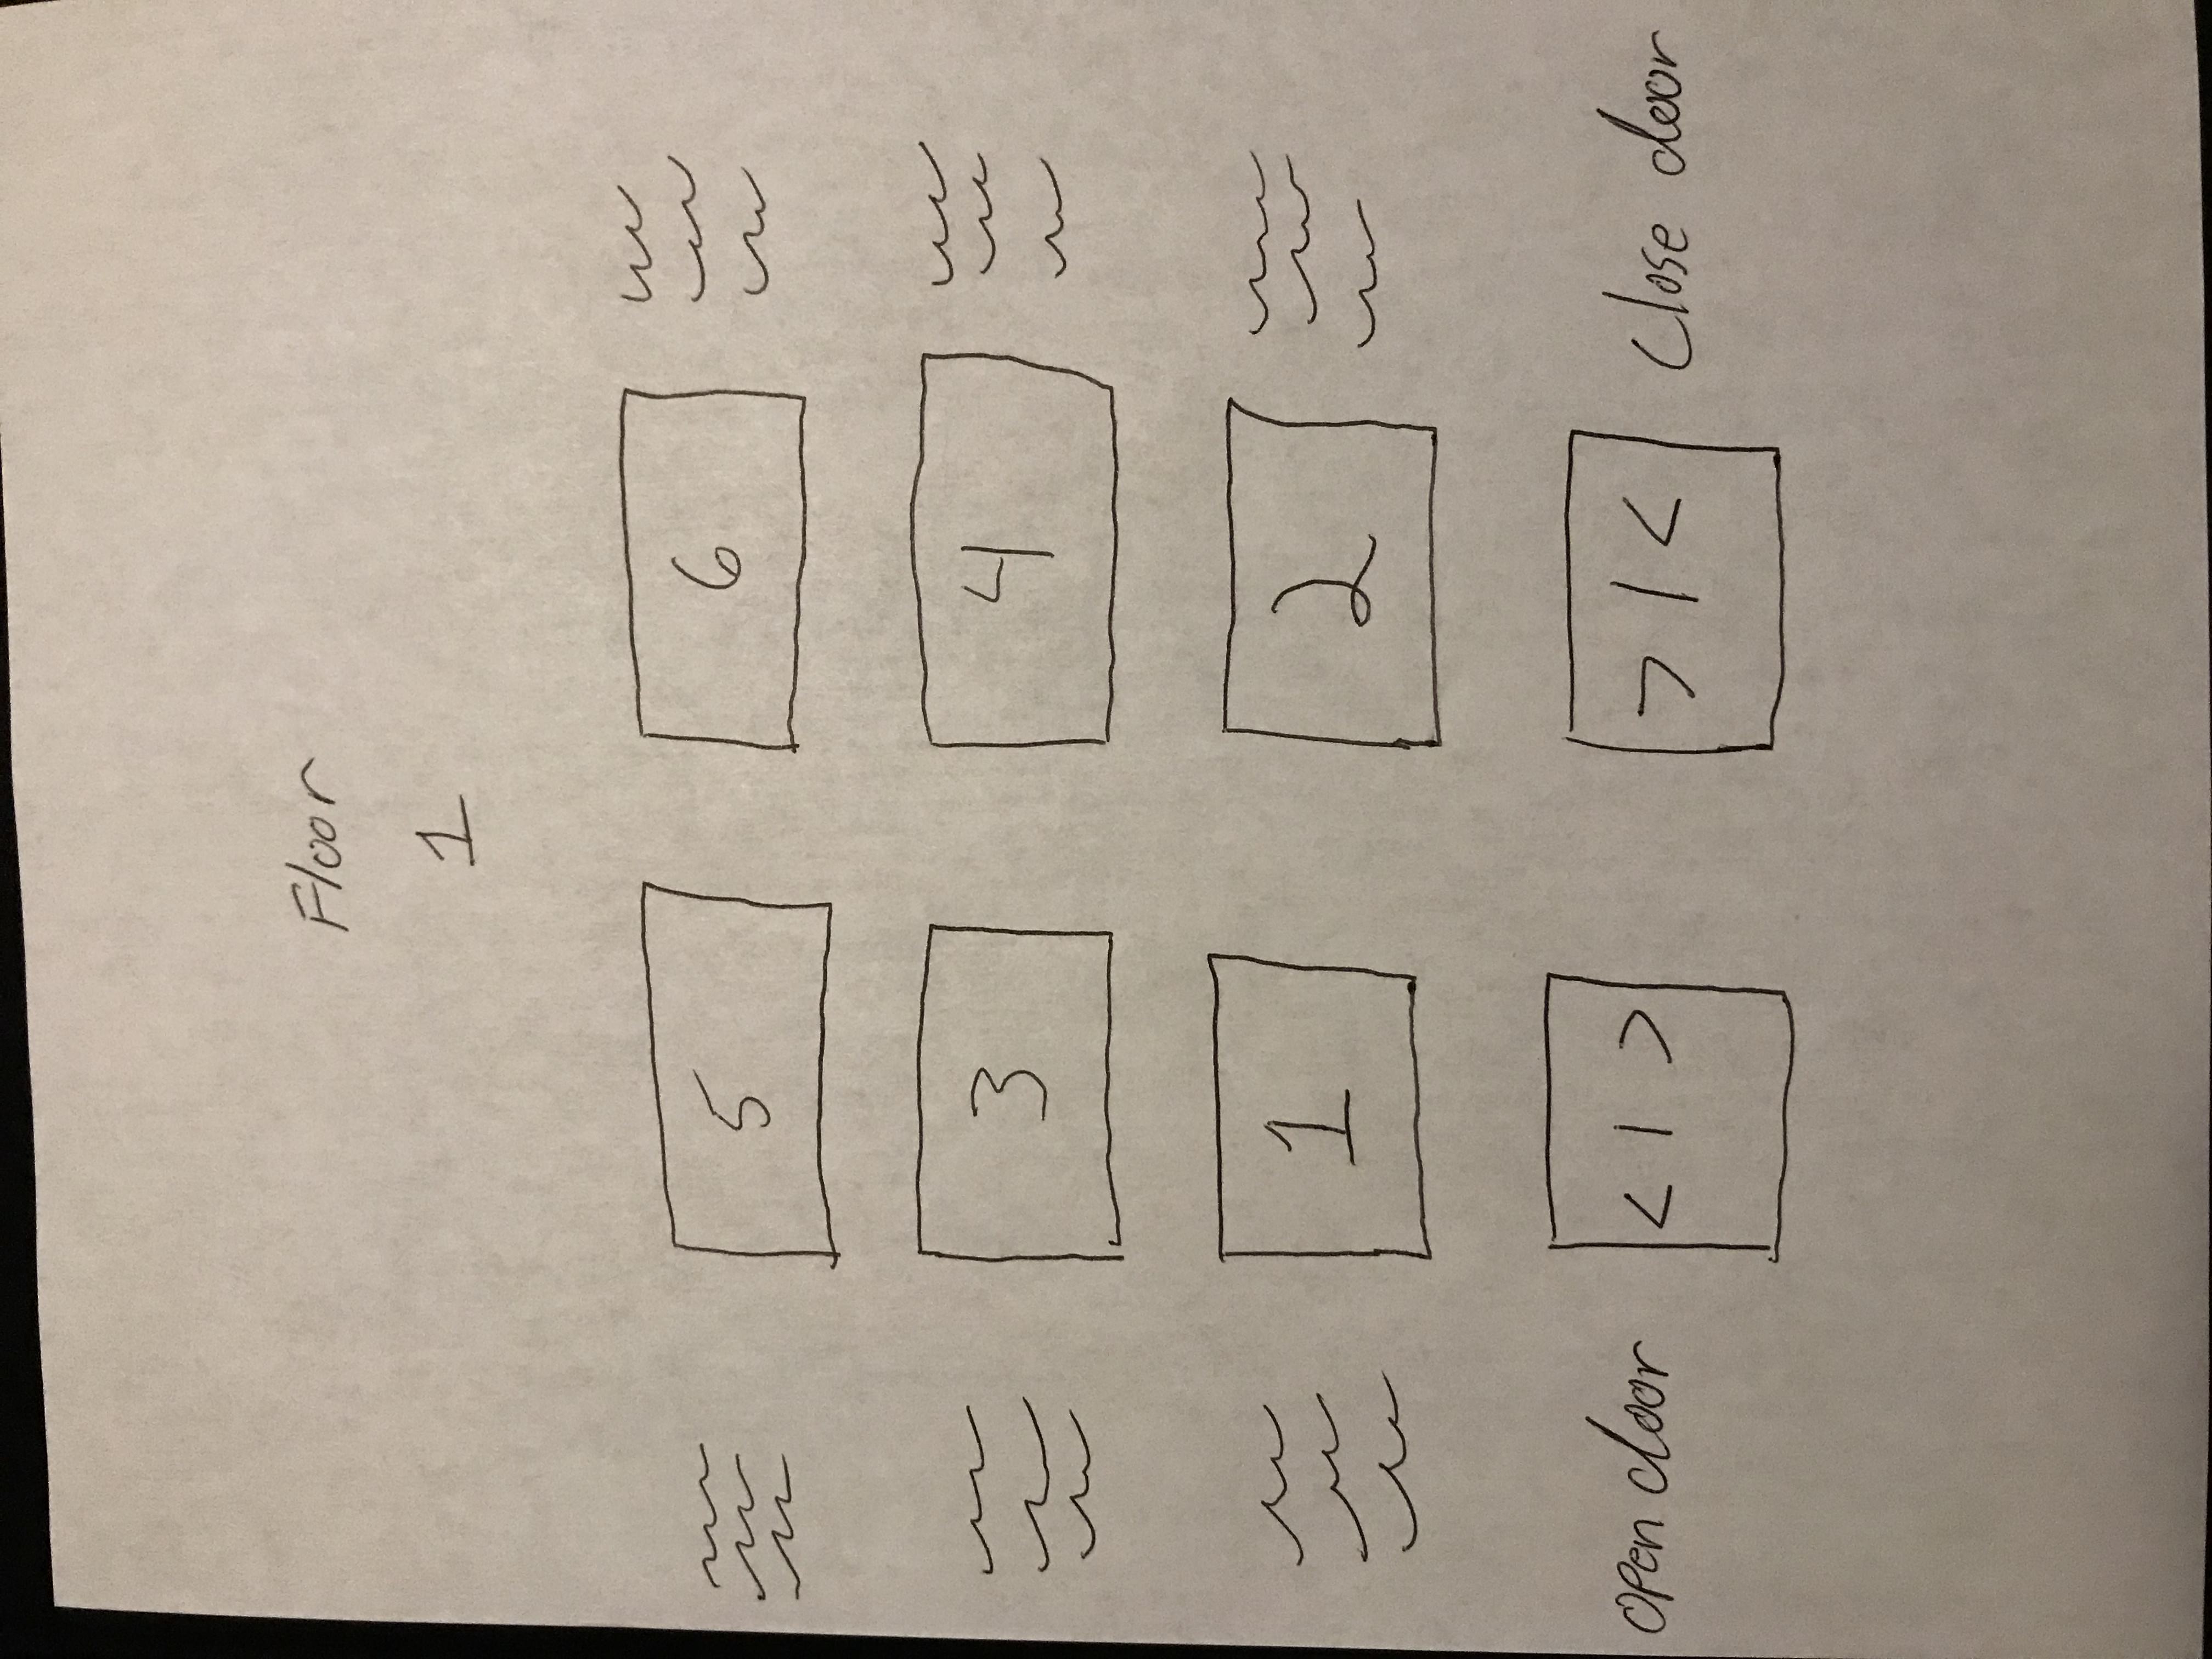 Floor
1
5 6
3 4
1 2
open door < | > > | < Close door